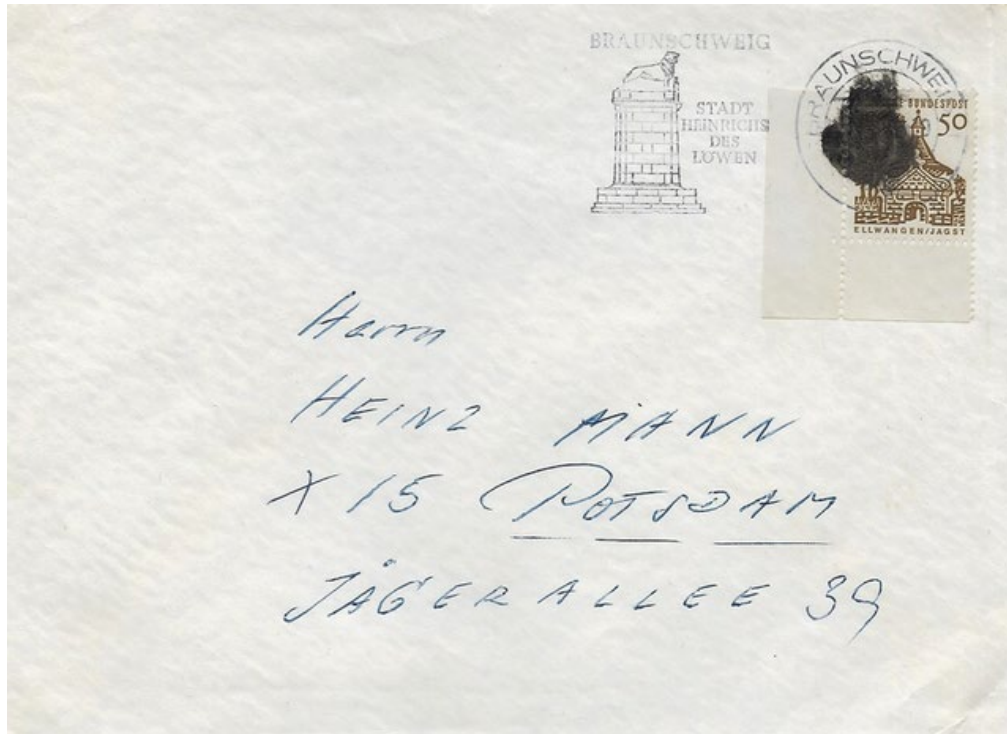 BRAUNSCHWEIG
STADT
HEINRICHS
DES
LÖWEN
BRAUNSCHWEI
BUNDESPOST
50
ELLWANGEN/JAGST
Herrn
HEINZ MANN
X 15 POTSDAM
JÄGERALLEE 39